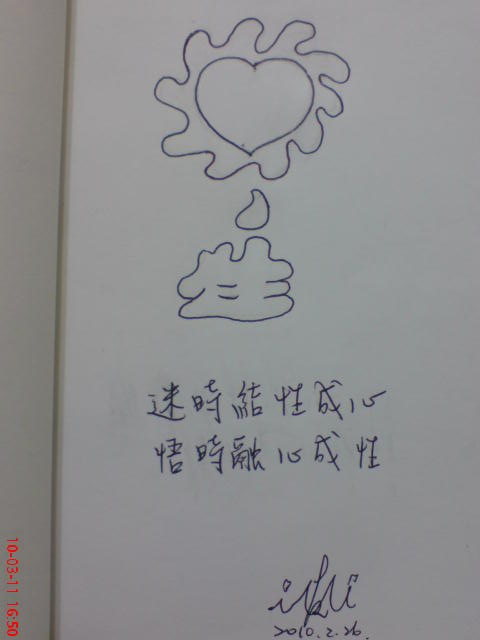 迷時結性成心
悟時融心成性
2010.2.26.
10-03-11 16:50